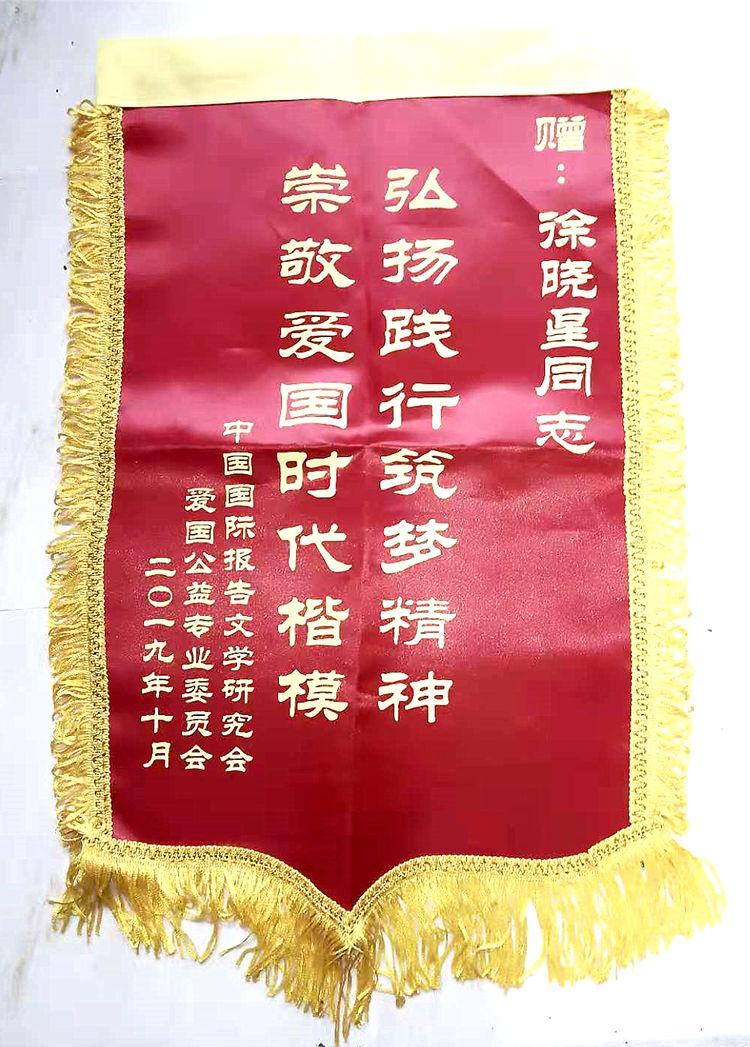 赠：徐晓星同志
弘扬践行筑梦精神
崇敬爱国时代楷模
中国国际报告文学研究会
爱国公益专业委员会
二〇一九年十月